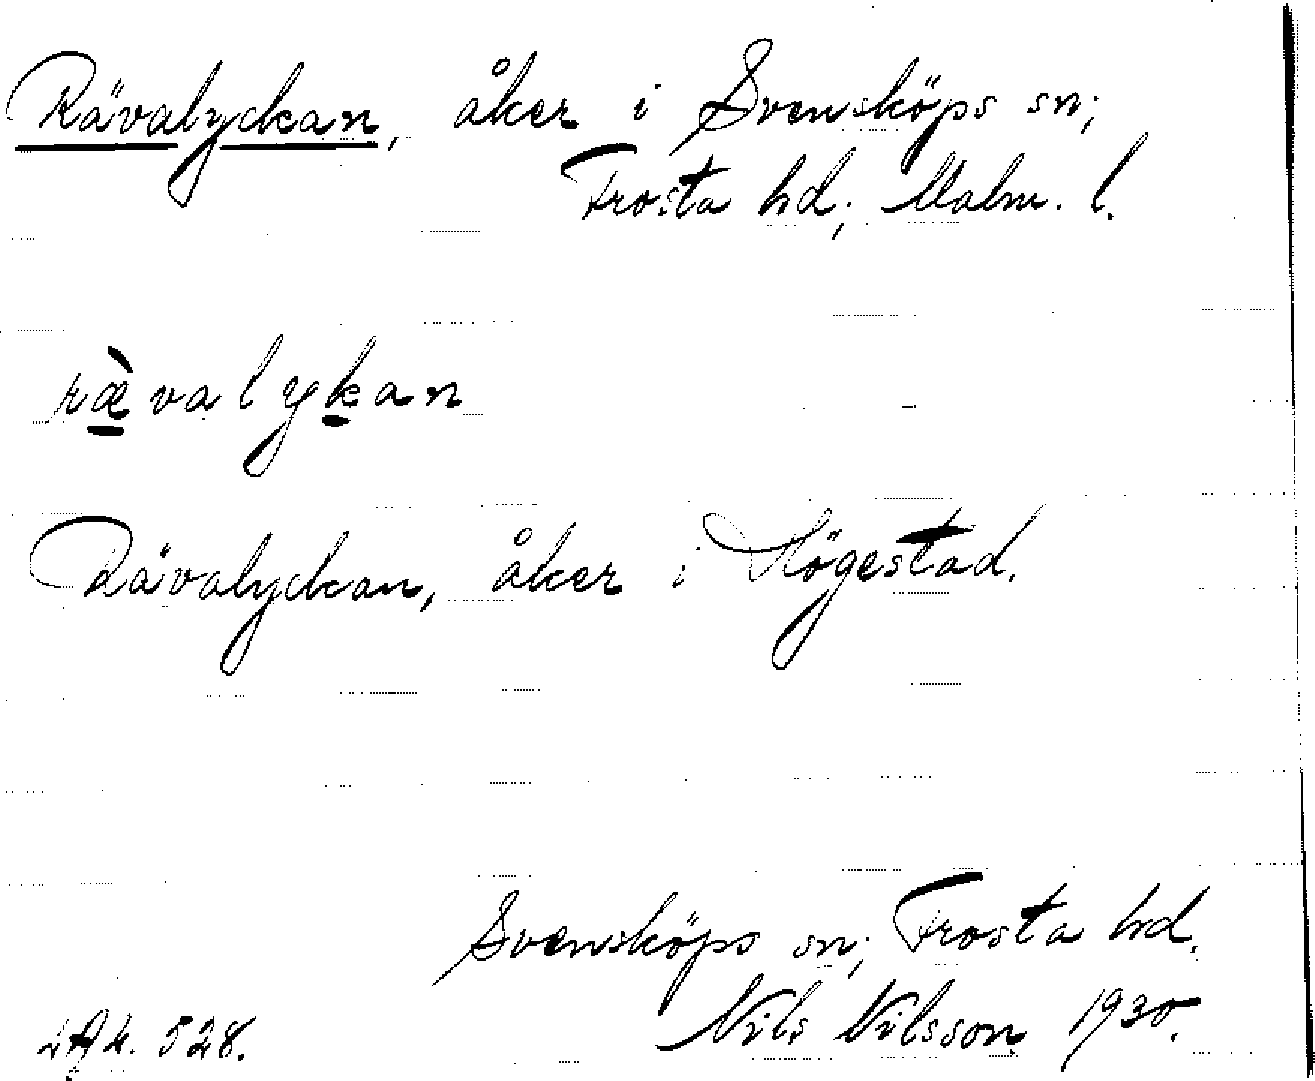 Rävalyckan, åker i Svensköps sn;
Frosta hd; Malm. l.
ræ̀valykan
Rävalyckan, åker i Högestad.
Svensköps sn; Frosta hd.
Nils Nilsson 1930.
LAL. 528.